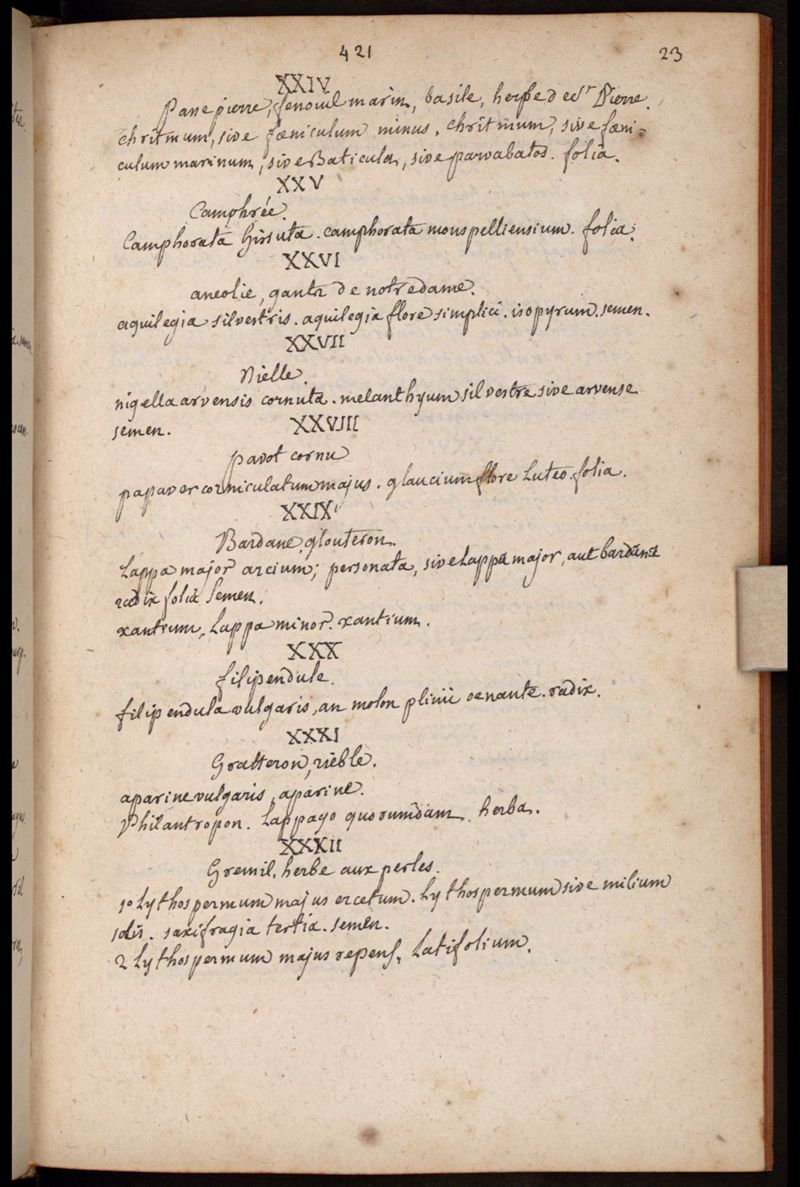 421
23
XXIV
Passe pierre, fenouil marin, basile, herbe de St Pierre.
chritmum, sive fœniculum minus. chritmum, sive fœni-
culum marinum, sive Baticula, sive parvabatos. folia.
XXV
Camphrée.
Camphorata hirsuta. camphorata monspelliensium. folia.
XXVI
ancolie, gants de notredame.
aquilegia silvestris. aquilegia flore simplici. isopyrum. semen.
XXVII
Nielle.
nigella arvensis cornuta. melanthyum silvestre sive arvense
semen.
XXVIII
pavot cornu
papaver corniculatum majus. glaucium flore Luteo. folia.
XXIX
Bardane, glouteron.
Lappa major arcium; personata, sive Lappa major, aut bardana
radix folia Semen.
xantium, Lappa minor. xantium.
XXX
filipendule.
filipendula vulgaris, an molon plinii oenante. radix.
XXXI
Gratteron, rieble.
aparine vulgaris, aparine.
Philantropon. Lappago quorumdam. herba.
XXXII
Gremil, herbe aux perles.
1o Lythospermum majus erectum. Lythospermum sive milium
solis. saxifragia tertia. semen.
2 Lythospermum majus repens, Latifolium.